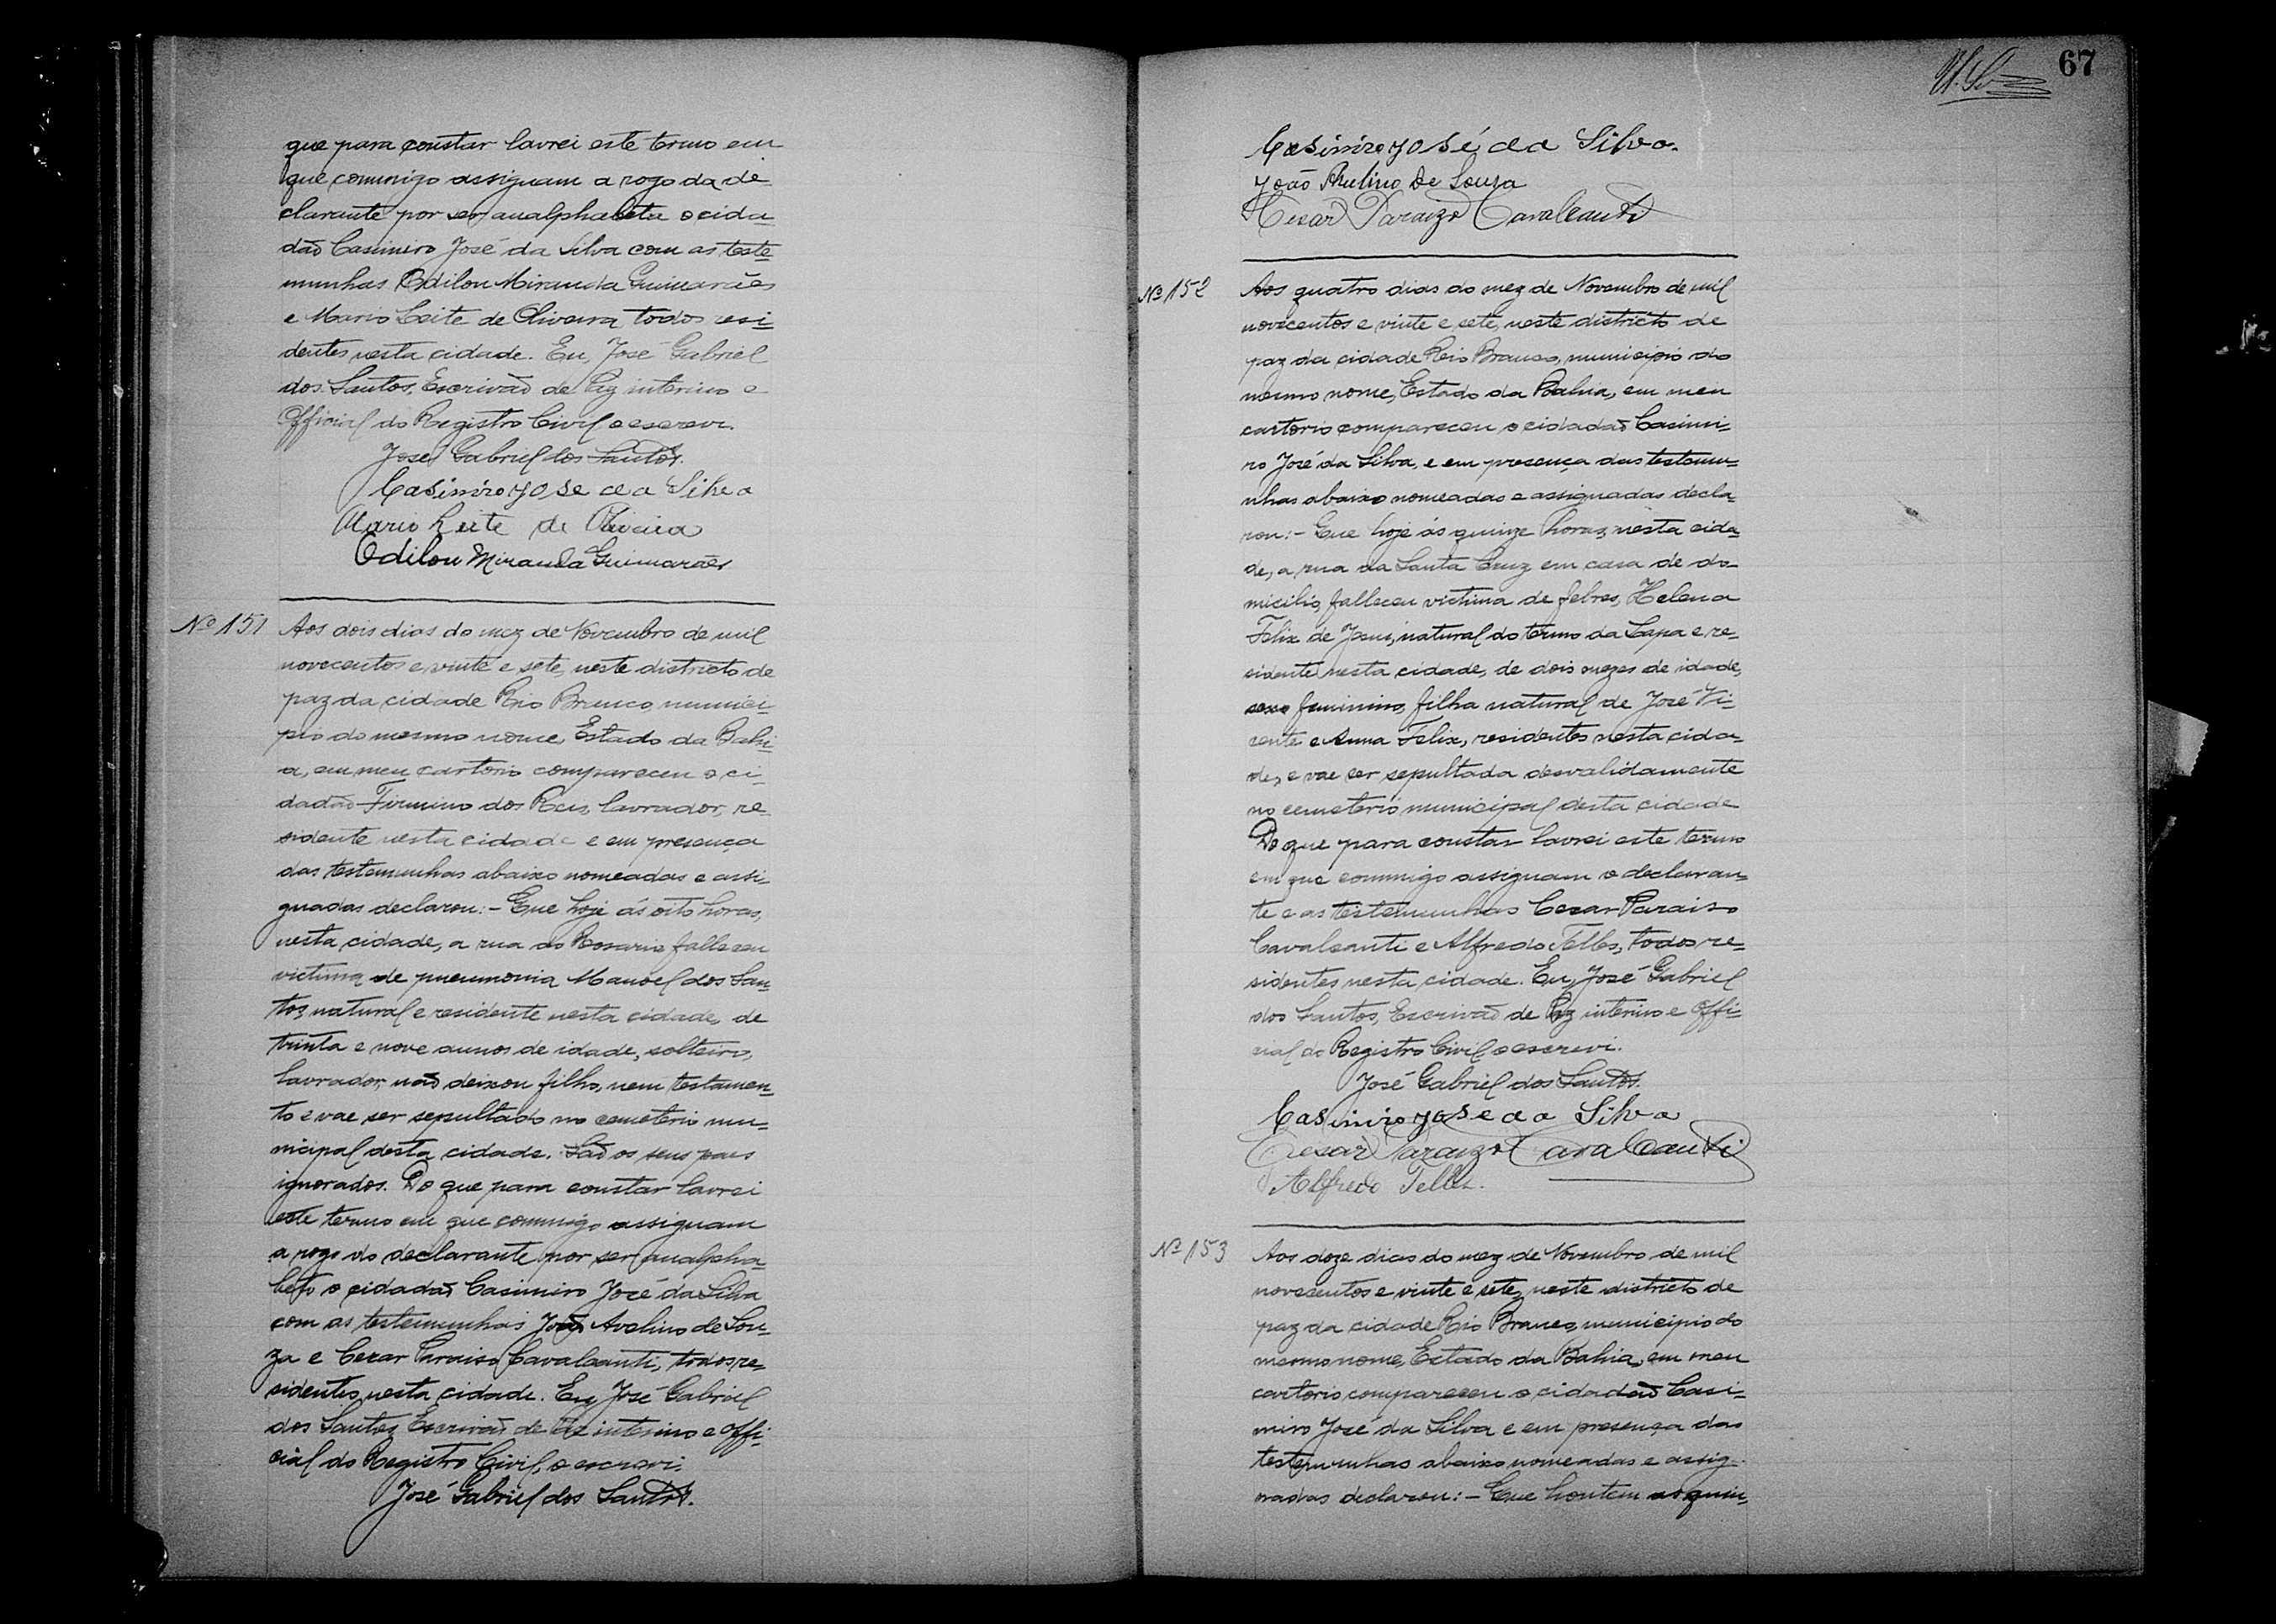 que para constar lavrei este termo em
que commigo assignam a rogo da de-
clarante por ser analphabeta o cida-
dão Casimiro José da Silva com as teste-
munhas Odilon Miranda Guimarães
e Mario Leite de Oliveira todos resi-
dentes nesta cidade. Eu, José Gabriel
dos Santos, Escrivão de Paz interino e
Official do Registro Civil o escrevi.
José Gabriel dos Santos.
Casimiro José da Silva
Mario Leite de Oliveira
Odilon Miranda Guimarães
Nº 151
Aos dois dias do mez de Novembro de mil
novecentos e vinte e sete, neste districto de
paz da cidade Rio Branco, munici-
pio do mesmo nome, Estado da Bahi-
a, em meu cartorio compareceu o ci-
dadão Firmino dos Reis, lavrador, re-
sidente nesta cidade e em presença
das testemunhas abaixo nomeadas e assi-
gnadas declarou:- Que hoje ás oito horas,
nesta cidade, a rua do Rosario falleceu
victima de pneumonia Manoel dos San-
tos, natural e residente nesta cidade, de
trinta e nove annos de idade, solteiro,
lavrador, não deixou filho, nem testamen-
to e vae ser sepultado no cemeterio mu-
nicipal desta cidade. São os seus paes
ignorados. Do que para constar lavrei
este termo em que commigo assignam
a rogo do declarante por ser analpha-
beto o cidadão Casimiro José da Silva
com as testemunhas João Avelino de Sou-
za e Cezar Paraiso Cavalcanti, todos re-
sidentes nesta cidade. Eu, José Gabriel
dos Santos, Escrivão de Paz interino e Offi-
cial do Registro Civil, o escrevi.
José Gabriel dos Santos.
67
Casimiro José da Silva.
João Avelino De Souza
Cezar Paraizo Cavalcanti
Nº 152
Aos quatro dias do mez de Novembro de mil
novecentos e vinte e sete, neste districto de
paz da cidade Rio Branco, municipio do
mesmo nome, Estado da Bahia, em meu
cartorio compareceu o cidadão Casimi-
ro José da Silva, e em presença das testemu-
nhas abaixo nomeadas e assignadas decla-
rou:- Que hoje ás quinze horas, nesta cida-
de, a rua da Santa Cruz em casa de do-
micilio, falleceu victima de febres, Helena
Felix de Jesus, natural do termo da Lapa e re-
sidente nesta cidade, de dois mezes de idade,
sexo feminino, filha natural de José Vi-
cente e Anna Felix, residentes nesta cida-
de, e vae ser sepultada desvalidamente
no cemeterio municipal desta cidade
Do que para constar lavrei este termo
em que commigo assignam o declaran-
te e as testemunhas Cezar Paraiso
Cavalcanti e Alfredo Telles, todos re-
sidentes nesta cidade. Eu, José Gabriel
dos Santos, Escrivão de Paz interino e Offi-
cial do Registro Civil o escrevi.
José Gabriel dos Santos.
Casimiro José da Silva
Cezar Paraizo Cavalcanti
Alfredo Telles.
Nº 153
Aos doze dias do mez de Novembro de mil
novecentos e vinte e sete, neste districto de
paz da cidade Rio Branco, municipio do
mesmo nome, Estado da Bahia, em meu
cartorio compareceu o cidadão Casi-
miro José da Silva e em presença das
testemunhas abaixo nomeadas e assig-
nadas declarou:- Que hontem as quin-